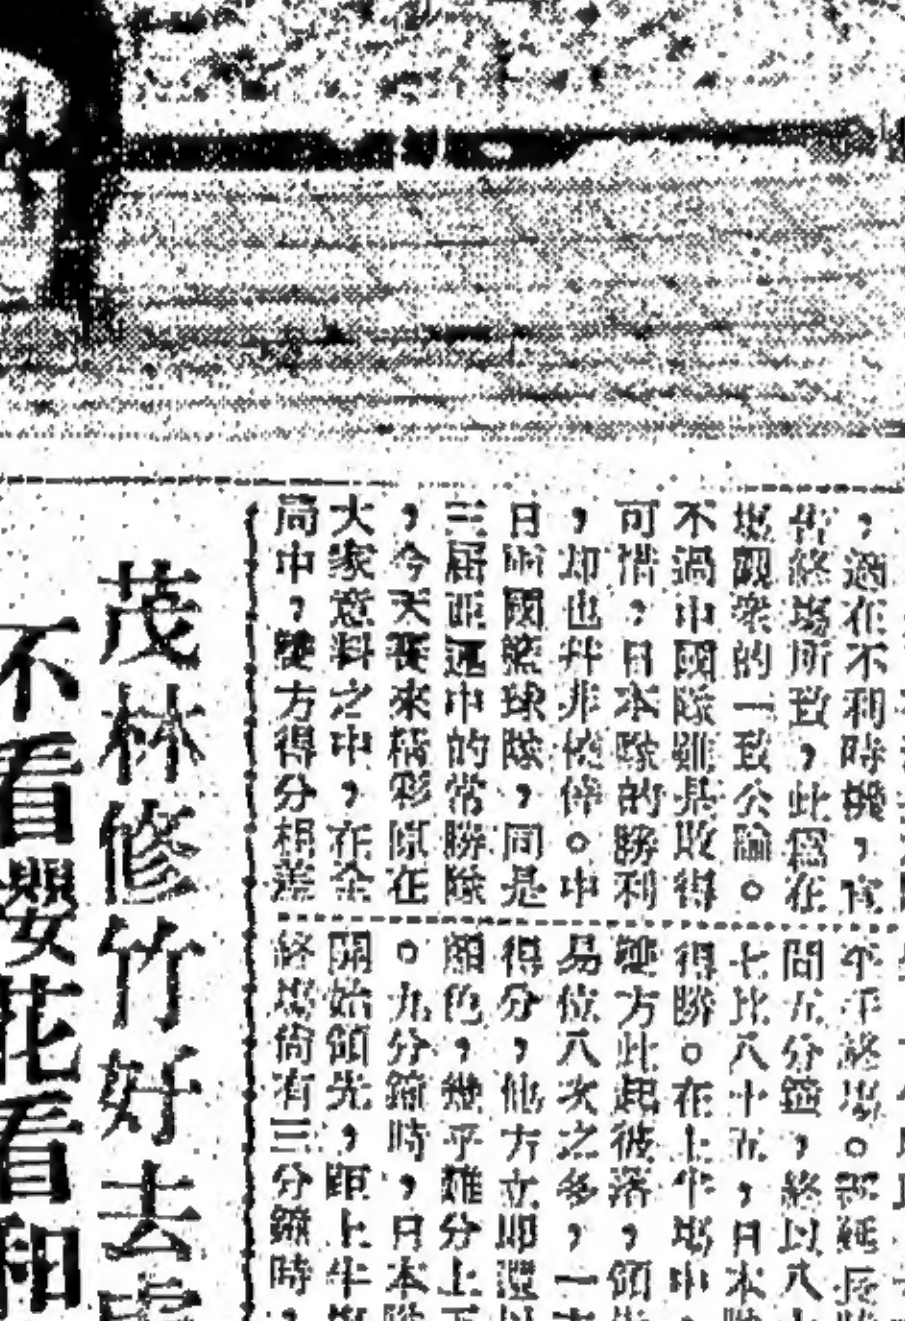 ，適在不利時機，宣
告終場所致，此爲在
場觀衆的一致公論。
不過中國隊雖是敗得
可惜，日本隊的勝利
，却也幷非僥倖。中
日兩國籃球隊，同是
三屆亞運中的常勝隊
，今天要來精彩原在
大家意料之中，在全
局中，雙方得分相差
平平終場。延長
間五分鐘，終以八
七比八十五，日本
得勝。在上半場中
雙方此起彼落，領
易位八次之多，一
得分，他方立即還以
顏色，幾乎難分上下
。九分鐘時，日本隊
開始領先，距上半場
終場尙有三分鐘時，
茂林修竹好去處
不看櫻花看和